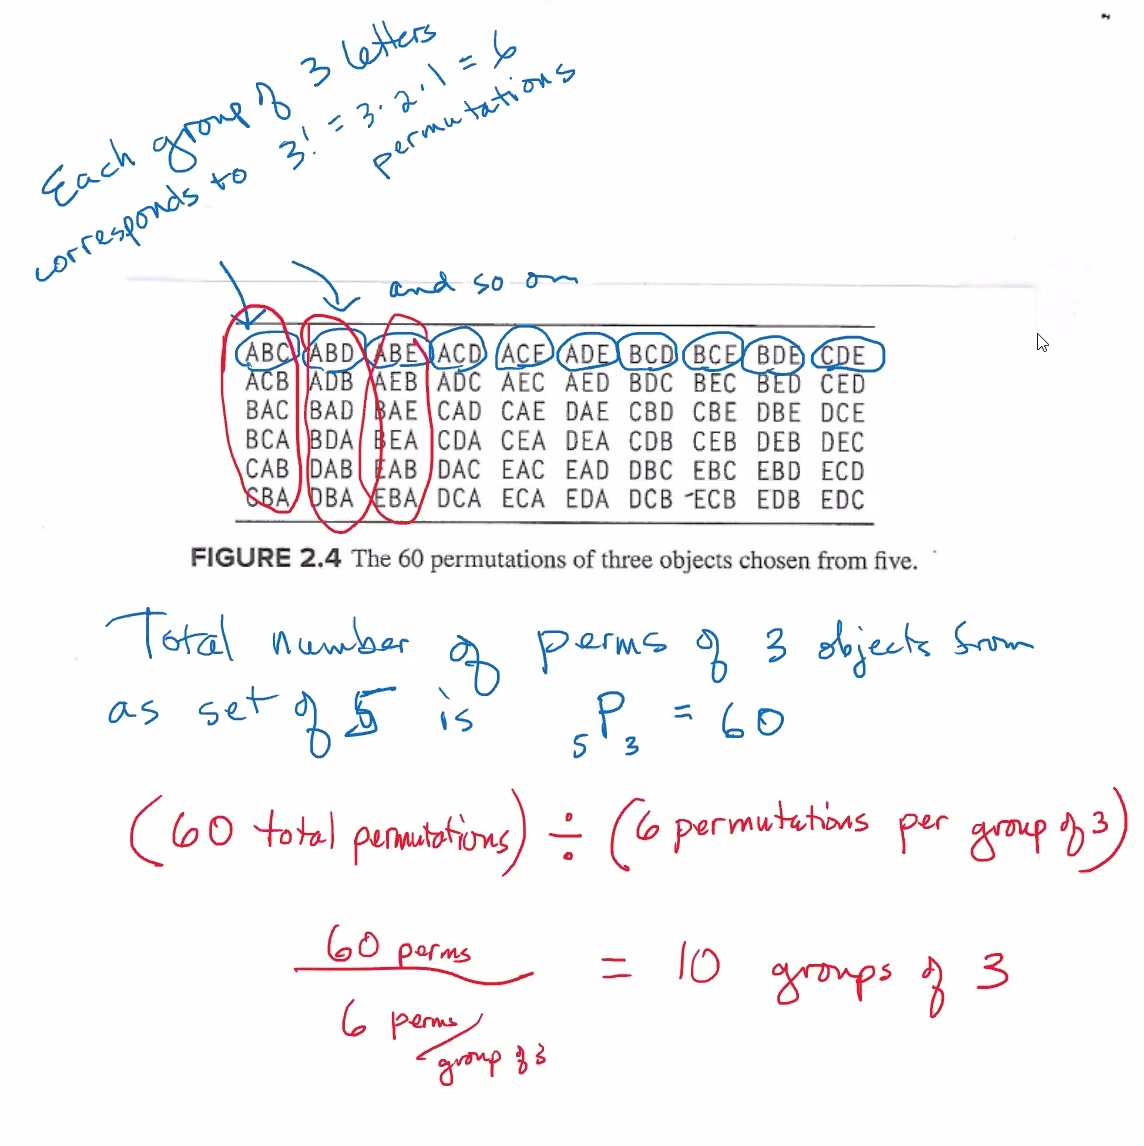 Each group of 3 letters
corresponds to 3! = 3·2·1 = 6
permutations
and so on
ABC ABD ABE ACD ACE ADE BCD BCE BDE CDE
ACB ADB AEB ADC AEC AED BDC BEC BED CED
BAC BAD BAE CAD CAE DAE CBD CBE DBE DCE
BCA BDA BEA CDA CEA DEA CDB CEB DEB DEC
CAB DAB EAB DAC EAC EAD DBC EBC EBD ECD
CBA DBA EBA DCA ECA EDA DCB ECB EDB EDC
FIGURE 2.4 The 60 permutations of three objects chosen from five.
Total number of perms of 3 objects from
as set of 5 is ₅P₃ = 60
(60 total permutations) ÷ (6 permutations per group of 3)
60 perms
= 10 groups of 3
6 perms/
group of 3